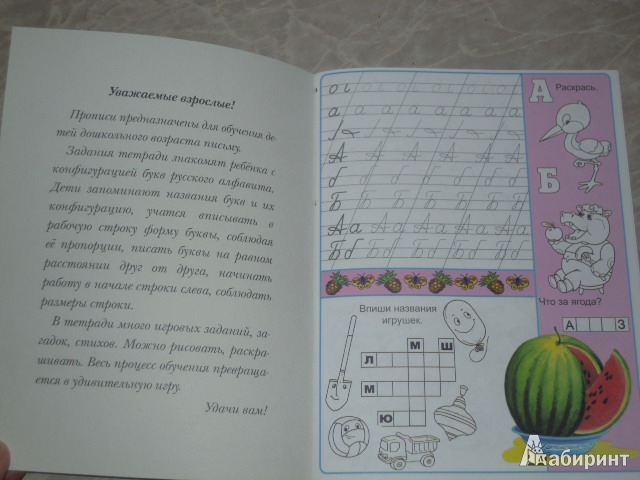 Уважаемые взрослые!
Прописи предназначены для обучения де-
тей дошкольного возраста письму.
Задания тетради знакомят ребёнка с
конфигурацией букв русского алфавита.
Дети запоминают названия букв и их
конфигурацию, учатся вписывать в
рабочую строку форму буквы, соблюдая
её пропорции, писать буквы на равном
расстоянии друг от друга, начинать
работу в начале строки слева, соблюдать
размеры строки.
В тетради много игровых заданий, за-
гадок, стихов. Можно рисовать, раскра-
шивать. Весь процесс обучения превраща-
ется в удивительную игру.
Удачи вам!
а а а а а а а
А А А А А А А
б б б б б б б
Б Б Б Б Б Б Б
Аа Аа Аа Аа Аа
Бб Бб Бб Бб Бб
А
Раскрась.
Б
Что за ягода?
А З
Впиши названия
игрушек.
М Ш
Л
М
Ю
Лабиринт